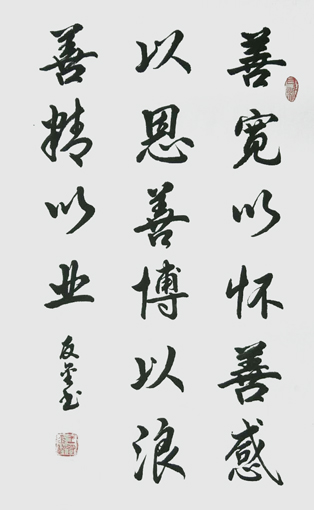 善宽以怀善感
以恩善博以浪
善精以业
友金书